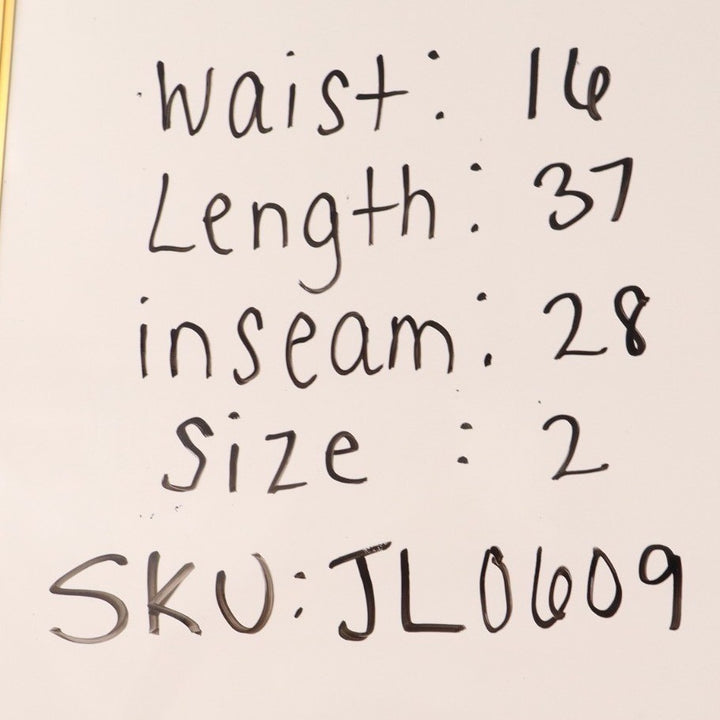 Waist: 16
Length: 37
inseam: 28
Size : 2
SKU: JL0609